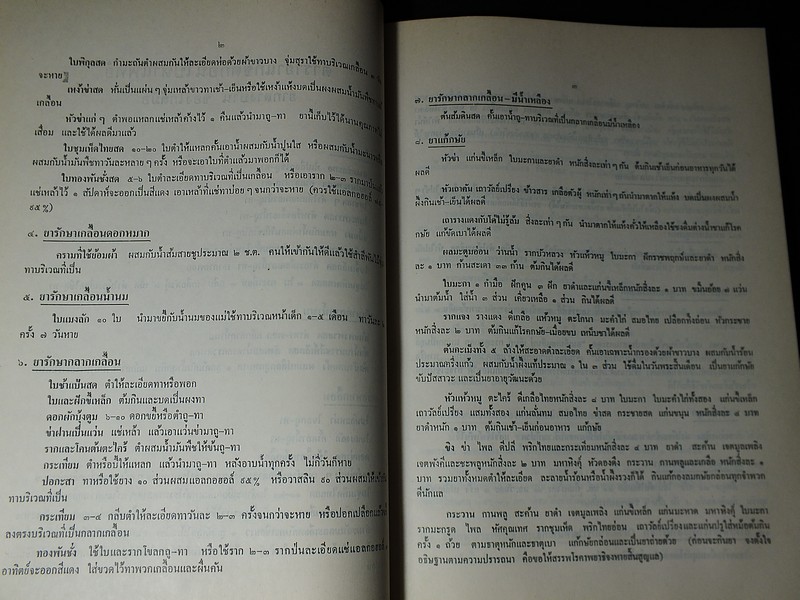 ๒
ใบพิกุลสด กำมะถันตำผสมกันให้ละเอียดห่อด้วยผ้าขาวบาง จุ่มสุราใช้ทาบริเวณเกลื้อน
จะหาย
เหง้าข่าสด หั่นเป็นแผ่นๆ จุ่มเหล้าขาวทาเช้า-เย็นหรือใช้เหง้าแห้งบดเป็นผงผสมน้ำมัน
เกลื้อน
หัวข่าแก่ๆ ตำพอแหลกแช่เหล้าค้างไว้ ๑ คืนแล้วนำมาถู-ทา ยานี้เก็บไว้ได้นาน
เสื่อม และใช้ได้ผลดีมาแล้ว
ใบชุมเห็ดไทยสด ๑๐-๒๐ ใบตำให้แหลกคั้นเอาน้ำผสมกับน้ำปูนใส หรือผสมกับน้ำ
ผสมกับน้ำมันพืชทาวันละหลายๆ ครั้ง หรือจะเอาใบที่ตำแล้วมาพอกก็ได้
ใบทองพันชั่งสด ๕-๖ ใบตำละเอียดทาบริเวณที่เป็นเกลื้อน หรือเอาราก ๒-๓ ราก
แช่เหล้าไว้ ๑ สัปดาห์จะออกเป็นสีแดง เอาเหล้าที่แช่ทาบ่อยๆ จนกว่าจะหาย (ควรใช้แอลกอฮอล์
๙๕%)
๔. ยารักษาเกลื้อนดอกหมาก
ครามที่ใช้ย้อมผ้า ผสมกับน้ำส้มสายชูประมาณ ๒ ช.ต. คนให้เข้ากันให้ดีแล้วใช้สำลี
ทาบริเวณที่เป็น
๕. ยารักษาเกลื้อนน้ำนม
ใบแมงลัก ๑๐ ใบ นำมาขยี้กับน้ำนมของแม่ใช้ทาบริเวณหน้าเด็ก ๑-๕ เดือน ทาวันละ
ครั้ง ๗ วันหาย
๖. ยารักษากลากเกลื้อน
ใบช้าแป้นสด ตำให้ละเอียดทาหรือพอก
ใบและฝักขี้เหล็ก ต้มกินและบดเป็นผงทา
ดอกผักบุ้งตูม ๖-๑๐ ดอกขยี้หรือตำถู-ทา
ข่าฝานเป็นแว่น แช่เหล้า แล้วเอาแว่นข่ามาถู-ทา
รากและโคนต้นตะไคร้ ตำผสมน้ำมันพืชให้ข้นถู-ทา
กระเทียม ตำหรือปี้ให้แหลก แล้วนำมาถู-ทา หลังอาบน้ำทุกครั้ง ไม่กี่วันก็หาย
ปอกะสา ทาหรือใช้ยาง ๑๐ ส่วนผสมแอลกอฮอล์ ๙๕% หรือวาสลิน ๙๐ ส่วนผสมให้
ทาบริเวณที่เป็น
กระเทียม ๓-๔ กลีบตำให้ละเอียดทาวันละ ๒-๓ ครั้งจนกว่าจะหาย หรือปอกเปลือก
ลงตรงบริเวณที่เป็นกลากเกลื้อน
ทองพันชั่ง ใช้ใบและรากโขลกถู-ทา หรือใช้ราก ๒-๓ รากป่นละเอียดแช่แอลกอฮอล์
อาทิตย์จะออกสีแดง ใส่ขวดไว้ทาพวกเกลื้อนและผื่นคัน
๓
๗. ยารักษากลากเกลื้อน-มีน้ำเหลือง
ต้นส้มดินสด คั้นเอาน้ำถู-ทาบริเวณที่เป็นกลากเกลื้อนมีน้ำเหลือง
๘. ยาแก้กษัย
หัวข่า แก่นขี้เหล็ก ใบมะกาและยาดำ หนักสิ่งละเท่าๆ กัน ต้มกินเช้าเย็นก่อนอาหารทุกวันได้
ผลดี
หัวเถาคัน เถาวัลย์เปรียง ข้าวสาร เกลือตัวผู้ หนักเท่าๆ กันนำมาตากให้แห้ง บดเป็นผงผสมน้ำ
ผึ้งกินเช้า-เย็นได้ผลดี
เถารางแดงกับโด่ไม่รู้ล้ม สิ่งละเท่าๆ กัน นำมาตากให้แห้งคั่วให้เหลืองใช้ชงดื่มต่างน้ำชาแก้โรค
กษัย แก้ขัดเบาได้ผลดี
ผลมะตูมอ่อน ว่านน้ำ รากบัวหลวง หัวแห้วหมู ใบมะกา ฝักราชพฤกษ์และยาดำ หนักสิ่ง
ละ ๑ บาท ก้านสะเดา ๓๓ ก้าน ต้มกินได้ผลดี
ใบมะกา ๑ กำมือ ฝักคูน ๓ ฝัก ยาดำและแก่นขี้เหล็กหนักสิ่งละ ๑ บาท ขมิ้นอ้อย ๗ แว่น
นำมาต้มน้ำ ใส่น้ำ ๓ ส่วน เคี่ยวเหลือ ๑ ส่วน กินได้ผลดี
รากแจง รางแดง ดีเกลือ แห้วหมู ตะโกนา มะคำไก่ สมอไทย เปลือกกิ่งอ่อน หัวกระชาย
หนักสิ่งละ ๒ บาท ต้มกินแก้โรคกษัย-เมื่อยขบ เหน็บชาได้ผลดี
ต้นคะเม็งทั้ง ๕ ล้างให้สะอาดตำละเอียด คั้นเอาเฉพาะน้ำกรองด้วยผ้าขาวบาง ผสมกับน้ำร้อน
ประมาณครึ่งแก้ว ผสมกับน้ำผึ้งแท้ประมาณ ๑ ใน ๓ ส่วน ใช้ดื่มในวันพระสิ้นเดือน เป็นยาแก้กษัย
ขับปัสสาวะ และเป็นยาอายุวัฒนะด้วย
หัวแห้วหมู ตะไคร้ ดีเกลือไทยหนักสิ่งละ ๘ บาท ใบมะกา ใบมะคำไก่ทั้งสอง แก่นขี้เหล็ก
เถาวัลย์เปรียง แสมทั้งสอง แก่นลั่นทม สมอไทย ข่าสด กระชายสด แก่นขนุน หนักสิ่งละ ๔ บาท
ยาดำหนัก ๑ บาท ต้มกินเช้า-เย็นก่อนอาหาร แก้กษัย
ขิง ข่า ไพล ดีปลี พริกไทยและกระเทียมหนักสิ่งละ ๔ บาท ยาดำ สะค้าน เจตมูลเพลิง
เจตพังคีและชะพลูหนักสิ่งละ ๒ บาท มหาหิงคุ์ หัวดองดึง กระวาน กานพลูและเกลือ หนักสิ่งละ ๑
บาท รวมยาทั้งหมดตำให้ละเอียด ละลายน้ำร้อนหรือน้ำผึ้งรวงก็ได้ กินแก้กองลมกษัยกล่อนทุกจำพวก
ดีนักแล
กระวาน กานพลู สะค้าน ยาดำ เจตมูลเพลิง แก่นขี้เหล็ก แก่นมะหาด มหาหิงคุ์ ใบมะกา
รากมะกรูด ไพล หัศคุณเทศ รากชุมเห็ด พริกไทยอ่อน เถาวัลย์เปรียงและแก่นปรูใส่หม้อต้มกิน
ครั้ง ๑ ถ้วย ตามธาตุหนักและธาตุเบา แก้กษัยกล่อนและเป็นยาถ่ายด้วย (ก่อนจะกินยา จงตั้งใจ
อธิษฐานตามความปรารถนา คือขอให้สรรพโรคภายธิจงหายสิ้นสูญแล)